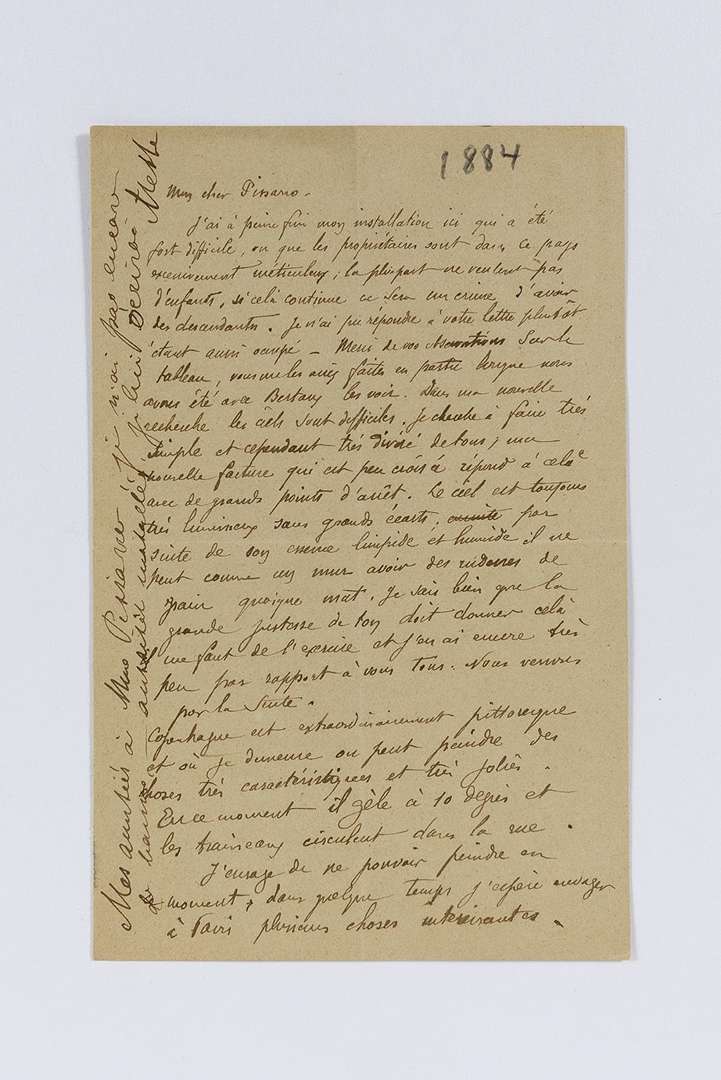 1884
Mon cher Pissarro -
J'ai à peine fini mon installation ici qui a été
fort difficile, vu que les propriétaires sont dans ce pays
excessivement méticuleux; la plupart ne veulent pas
d'enfants, si celà continue ce sera un crime d'avoir
des descendants. Je n'ai pu répondre à votre lettre plutôt
étant aussi occupé - Merci de vos observations sur le
tableau, vous me les aviez faites en partie lorsque nous
avons été avec Bertaux les voir. Dans ma nouvelle
recherche les ciels sont difficiles. Je cherche à faire très
simple et cependant très divisé de tons; ma
nouvelle facture qui est peu croisé répond à celà
avec de grands points d'arrêt. Le ciel est toujours
très lumineux sans grands écarts, par
suite de son essence limpide et humide il ne
peut comme un mur avoir des rudesses de
grain quoique mat. Je sais bien que la
grande justesse de ton doit donner celà
il me faut de l'exercice et j'en ai encore très
peu par rapport à vous tous. Nous verrons
par la suite.
Copenhague est extraordinairement pittoresque
et où je demeure on peut peindre des
choses très caractéristiques et très jolies.
En ce moment il gèle à 10 degrés et
les traineaux circulent dans la rue.
J'enrage de ne pouvoir peindre en
moment, dans quelque temps j'espère envoyer
à Paris plusieurs choses intéressantes.
Mes amitiés à Mme Pissarro; je n'ai pas encore
de bonne aussitôt installé, je lui écrirai Mette